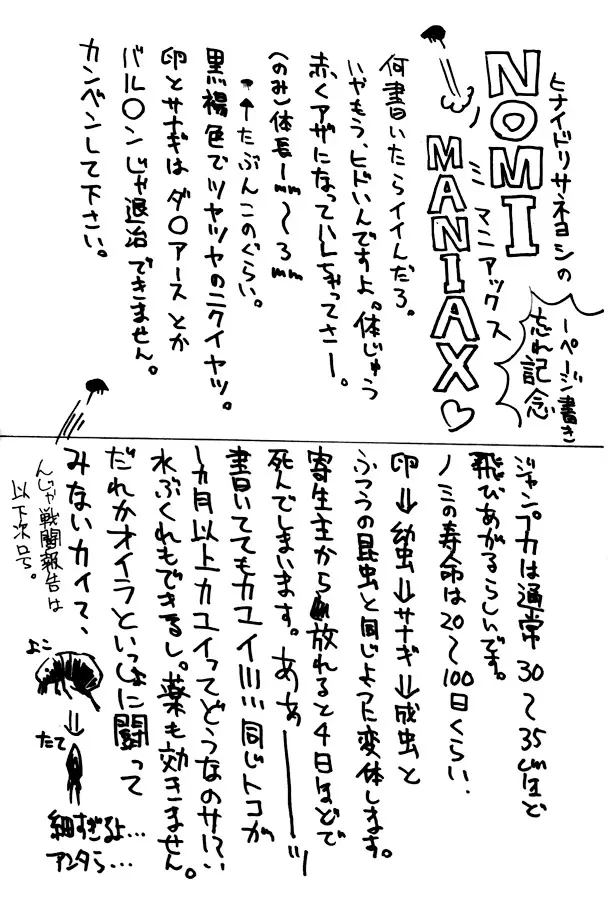 ヒナイドリサネヨシの
NOMI
ミ マニアックス
MANIAX♡
1ページ書き
忘れ記念
何書いたらイイんだろ。
いやもう、ヒドいんですよ。体じゅう
赤くアザになっていしちゃってさー。
(のみ)体長1mm〜3mm
・←たぶんこのぐらい。
黒褐色でツヤツヤのニクイヤツ。
卵とサナギはダ〇アースとか
バル〇ンじゃ退治できません。
カンベンして下さい。
ジャンプ力は通常30〜35cmほど
飛びあがるらしいです。
ノミの寿命は20〜100日くらい、
卵⇒幼虫⇒サナギ⇒成虫と
ふつうの昆虫と同じように変体します。
寄生主から放れると4日ほどで
死んでしまいます。あぁーーッ
書いててもカユイ!!!!同じトコが
1ヵ月以上カユイってどうなのサ!?
水ぶくれもできるし。薬も効きません。
だれかオイラといっしょに闘って
みないカイて、
んじゃ戦闘報告は
以下次号。
よこ
⇓
たて
細すぎるよ…
アンタら…